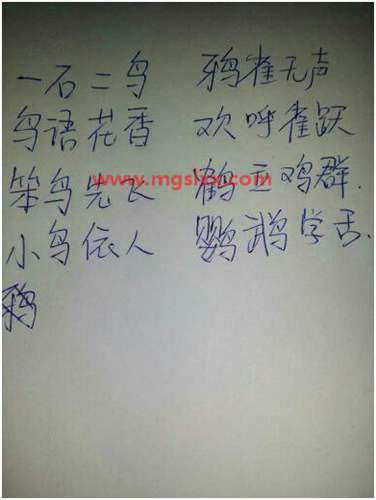 一石二鸟 鸦雀无声
鸟语花香 欢呼雀跃
笨鸟先飞 鹤立鸡群.
小鸟依人 鹦鹉学舌.